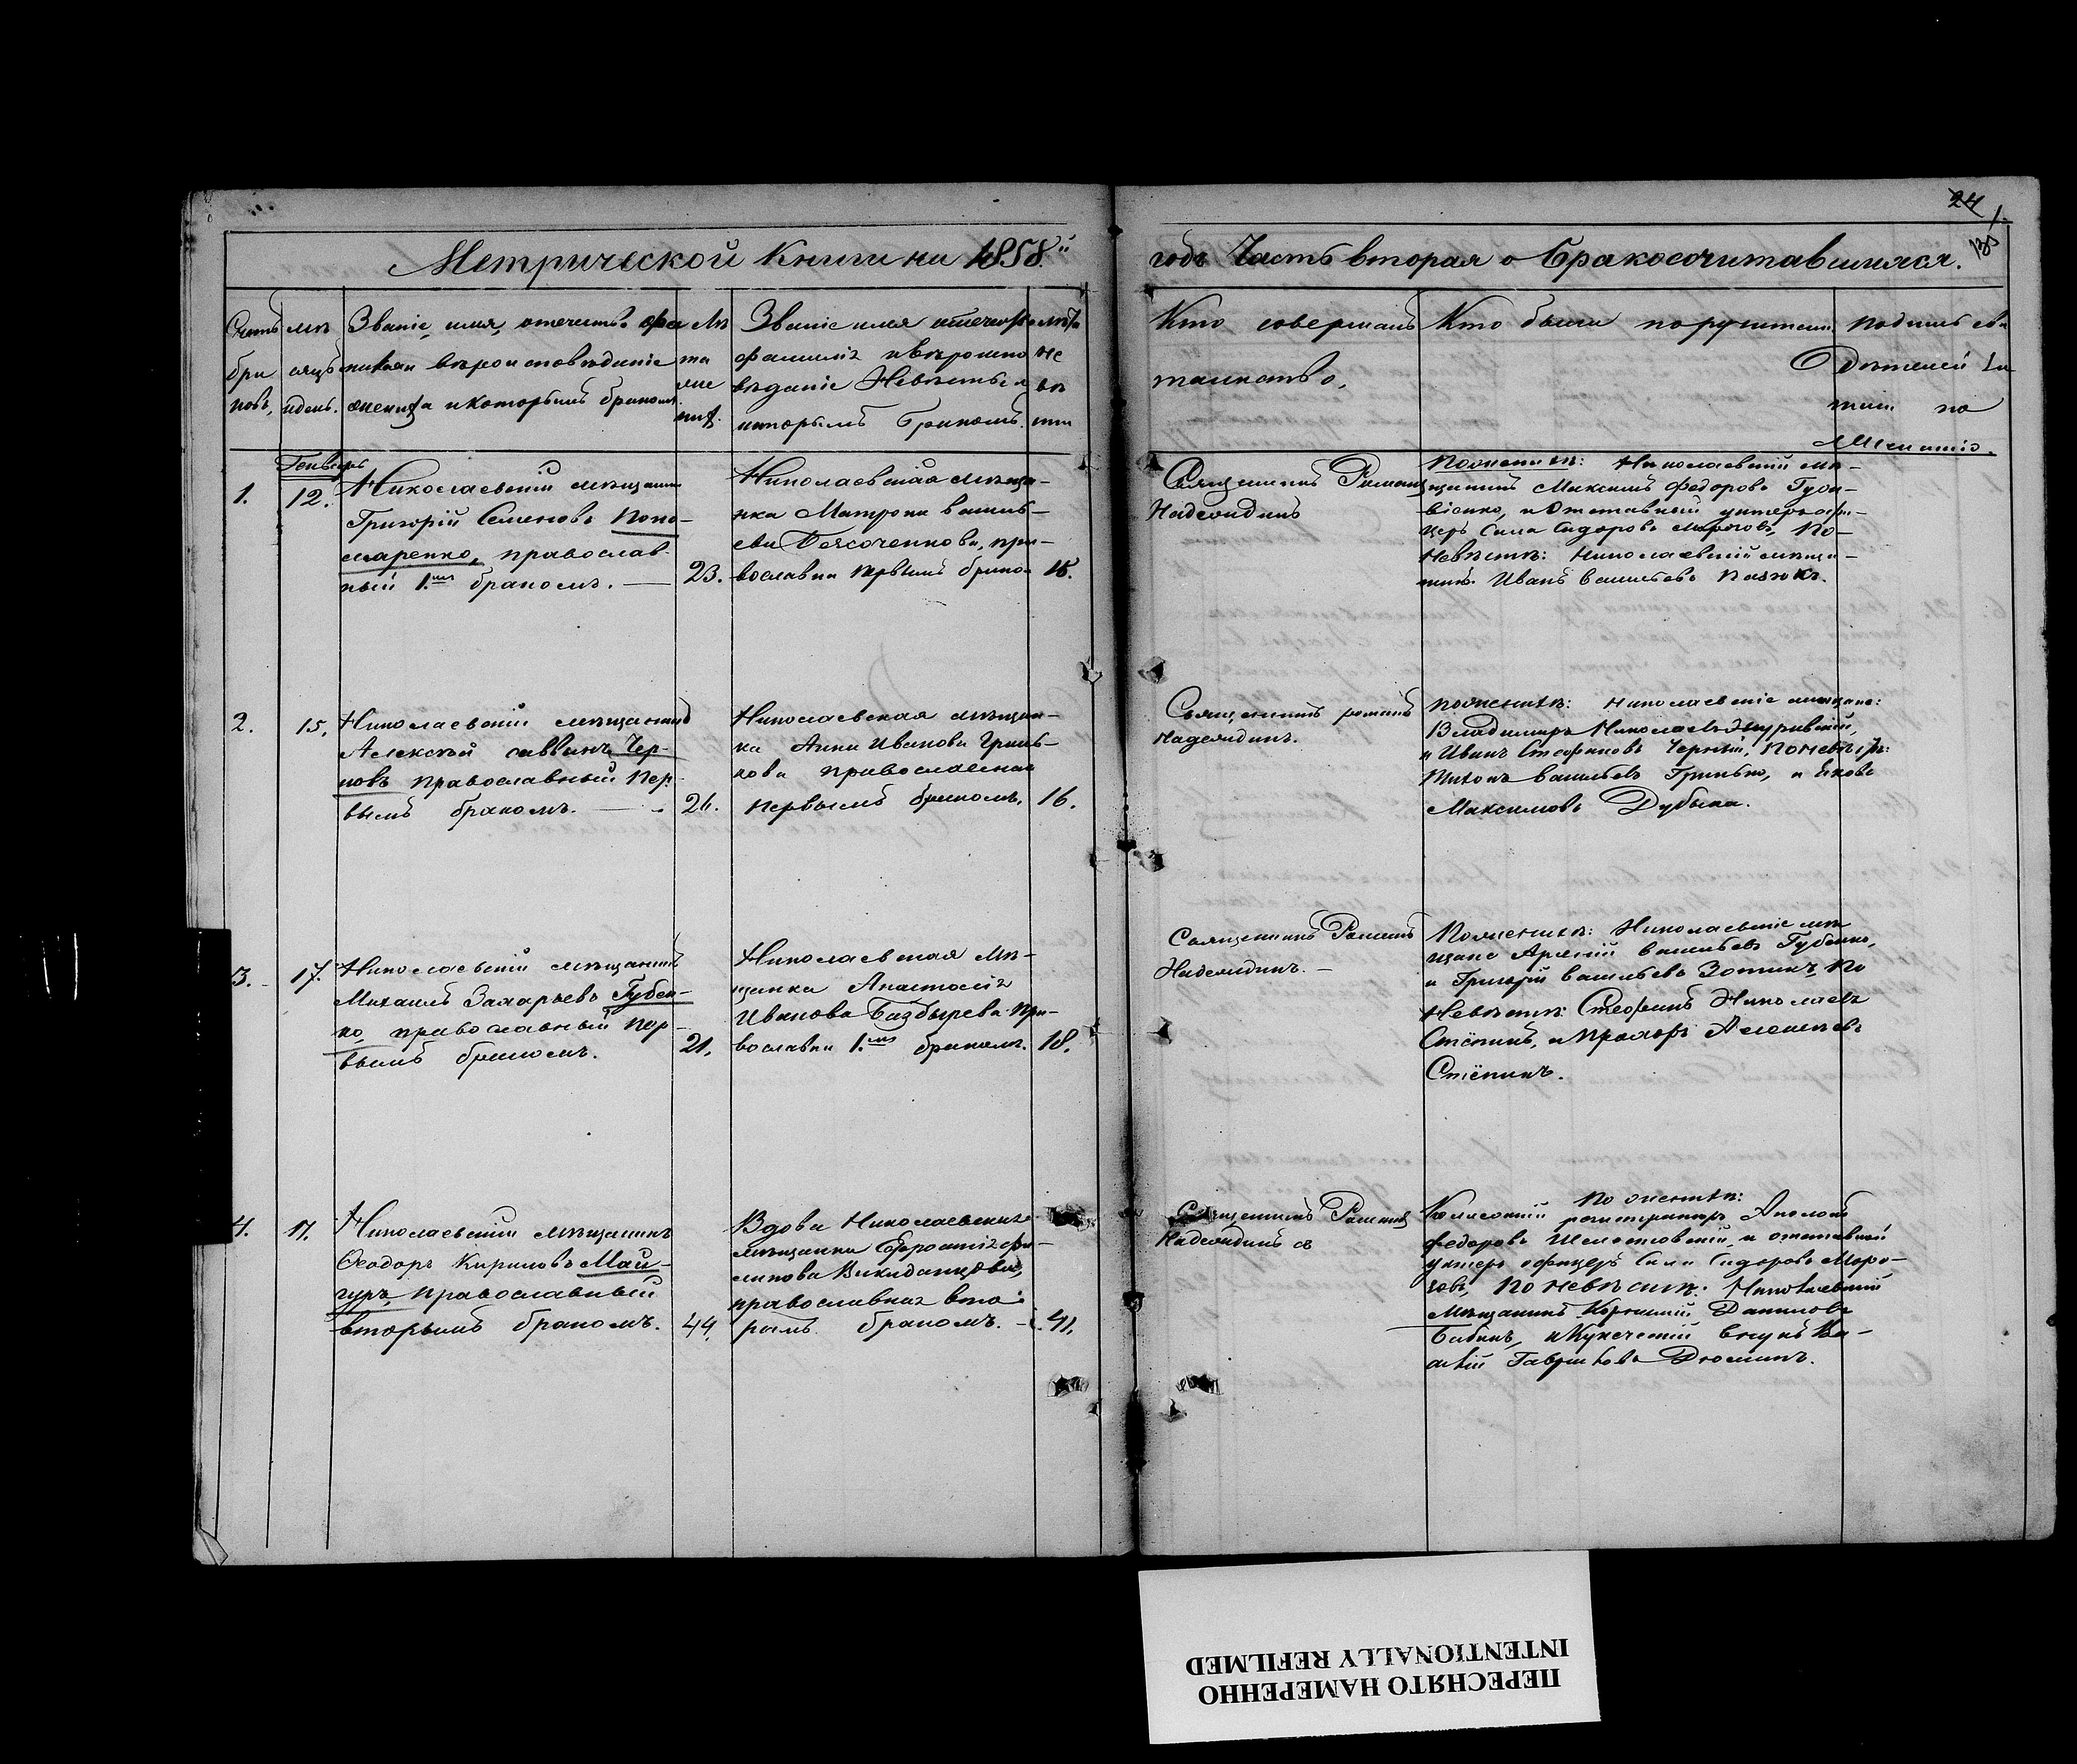 24
1.
135
Метрической Книги на 1858й
годъ Часть вторая о Бракосочитавшихся.
Счетъ браковъ,
мѣсяцъ и день.
Званіе, имя, отечество, фамилія и вѣроисповѣданіе жениха и которымъ бракомъ.
Лѣта жениха.
Званіе имя отечество фамилія и вѣроисповѣданіе Невѣсты и которымъ бракомъ.
лѣта невѣсты
Кто совершалъ таинство,
Кто были поручители
Подпись свидѣтелей записи по желанію.
Генварь
1.
12.
Николаевскій мѣщанинъ
Григорій Семеновъ Поно-
маренко, православ-
ный 1.мъ бракомъ. —
23.
Николаевская мѣща-
нка Матрона Василь-
ева православна первымъ брако-
18.
Священникъ Романъ
Надеждинъ
По женихѣ: Николаевскій мѣ-
щанинъ Максимъ Федоровъ Губа-
и отставный унтеръ-офи-
церъ Сила Сидоровъ Морозовъ, По
Невѣстѣ: Николаевскій мѣща-
нинъ Иванъ Васильевъ
2.
15.
Николаевскій мѣщанинъ
Алексѣй Саввинъ Чер-
новъ православный пер-
вымъ бракомъ. —
26.
Николаевская мѣщан-
ка Анна Иванова Гринь-
кова православная
первымъ бракомъ.
16.
Священникъ Романъ
Надеждинъ.
По женихѣ: Николаевскіе мѣщане:
Владимиръ Николаевъ
и Иванъ Стефановъ Черный, По невѣстѣ:
Тихонъ Васильевъ Гринько, и Яковъ
Максимовъ Дубына.
3.
17.
Николаевскій мѣщанинъ
Михаилъ Захарьевъ Губен-
ко, православный пер-
вымъ бракомъ.
21.
Николаевская мѣ-
щанка Анастасія
Иванова Базбырева пра-
вославна 1.мъ бракомъ.
18.
Священникъ Романъ
Надеждинъ. —
По женихѣ: Николаевскіе мѣ-
щане Арсеній Васильевъ Губенко,
и Григорій Васильевъ Зотикъ, По
Невѣстѣ: Стефанъ Николаевъ
Стёпинъ, и Прохоръ Алексѣевъ
Стёпинъ.
4.
17.
Николаевскій мѣщанинъ
Ѳеодоръ Кириловъ Май-
гуръ, православный
вторымъ бракомъ.
44.
Вдова Николаевская
мѣщанка Ефросинія фи-
липова
православная вто-
рымъ бракомъ. —
41.
Священникъ Романъ
Надеждинъ
По женихѣ:
Колежскій регистраторъ Аполонъ
Федоровъ и отставный
унтеръ офицеръ Сила Сидоровъ Моро-
зовъ, По невѣстѣ: Николаевскій
мѣщанинъ Корнилій Даниловъ
Бабинъ, и Купеческій внукъ Ва-
силій Гавриловъ Дюминъ.
ПЕРЕСНЯТО НАМЕРЕННО
INTENTIONALLY REFILMED